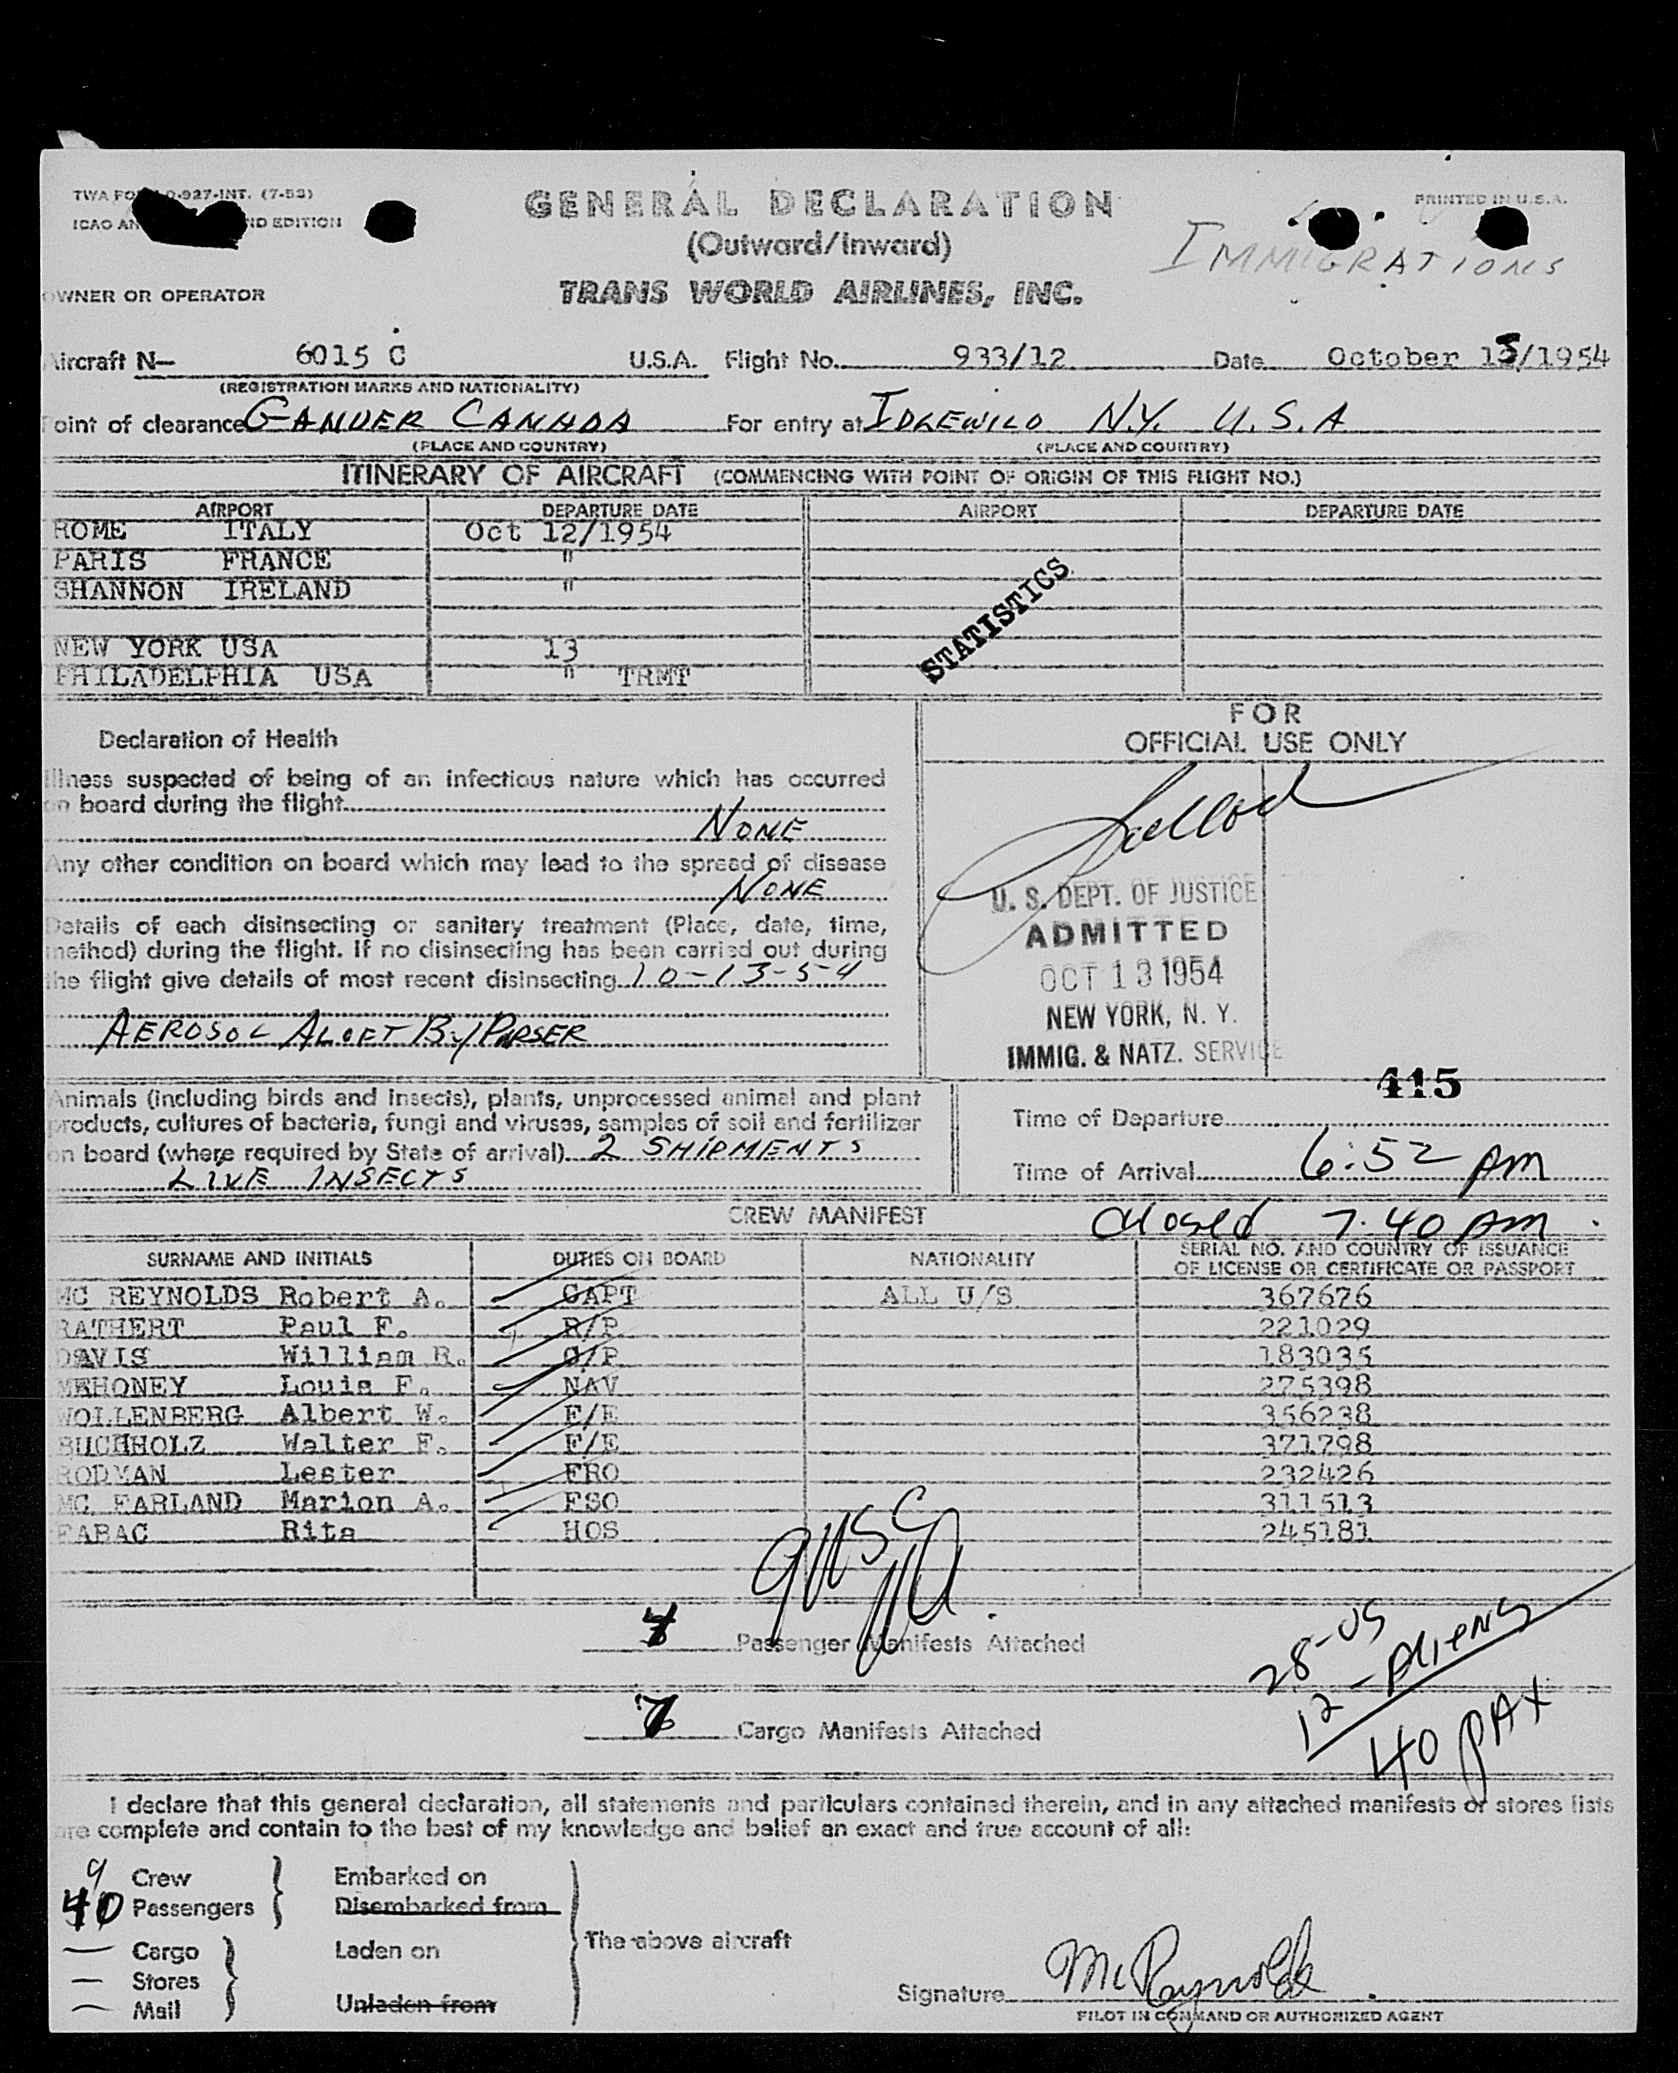 TWA FO D-927-INT. (7-53)
ICAO AN ND EDITION
PRINTED IN U.S.A.
GENERAL DECLARATION
(Outward/Inward)
IMMIGRATIONS
OWNER OR OPERATOR TRANS WORLD AIRLINES, INC.
Aircraft N— 6015 C U.S.A. Flight No. 933/12 Date October 13/1954
(REGISTRATION MARKS AND NATIONALITY)
Point of clearance GANDER CANADA For entry at IDLEWILD N.Y. U.S.A
(PLACE AND COUNTRY) (PLACE AND COUNTRY)
ITINERARY OF AIRCRAFT (COMMENCING WITH POINT OF ORIGIN OF THIS FLIGHT NO.)
AIRPORT DEPARTURE DATE AIRPORT DEPARTURE DATE
ROME ITALY Oct 12/1954
PARIS FRANCE "
SHANNON IRELAND "
STATISTICS
NEW YORK USA 13
PHILADELPHIA USA " TRMT
FOR
OFFICIAL USE ONLY
Declaration of Health
Illness suspected of being of an infectious nature which has occurred
on board during the flight
NONE
Any other condition on board which may lead to the spread of disease
NONE
Details of each disinsecting or sanitary treatment (Place, date, time,
method) during the flight. If no disinsecting has been carried out during
the flight give details of most recent disinsecting 10-13-54
AEROSOL ALOFT By PURSER
U. S. DEPT. OF JUSTICE
ADMITTED
OCT 13 1954
NEW YORK, N. Y.
IMMIG. & NATZ. SERVICE
415
Animals (including birds and insects), plants, unprocessed animal and plant
products, cultures of bacteria, fungi and viruses, samples of soil and fertilizer
on board (where required by State of arrival) 2 SHIPMENTS
LIVE INSECTS
Time of Departure
Time of Arrival 6:52 AM
CREW MANIFEST closed 7:40 AM
SURNAME AND INITIALS DUTIES ON BOARD NATIONALITY SERIAL NO. AND COUNTRY OF ISSUANCE
OF LICENSE OR CERTIFICATE OR PASSPORT
MC REYNOLDS Robert A. CAPT ALL U/S 367676
RATHERT Paul F. R/P 221029
DAVIS William R. 183035
MAHONEY Louis F. NAV 275398
WOLLENBERG Albert W. F/E 356238
BUCHHOLZ Walter F. F/E 371798
RODMAN Lester FRO 232426
MC FARLAND Marion A. FSO 311513
FABAC Rita HOS 245181
9 USC
Passenger Manifests Attached
28-US
12-Aliens
40 PAX
7 Cargo Manifests Attached
I declare that this general declaration, all statements and particulars contained therein, and in any attached manifests or stores lists
are complete and contain to the best of my knowledge and belief an exact and true account of all:
9 Crew Embarked on
40 Passengers Disembarked from
The above aircraft
— Cargo Laden on
— Stores
— Mail Unladen from
Signature McReynolds
PILOT IN COMMAND OR AUTHORIZED AGENT